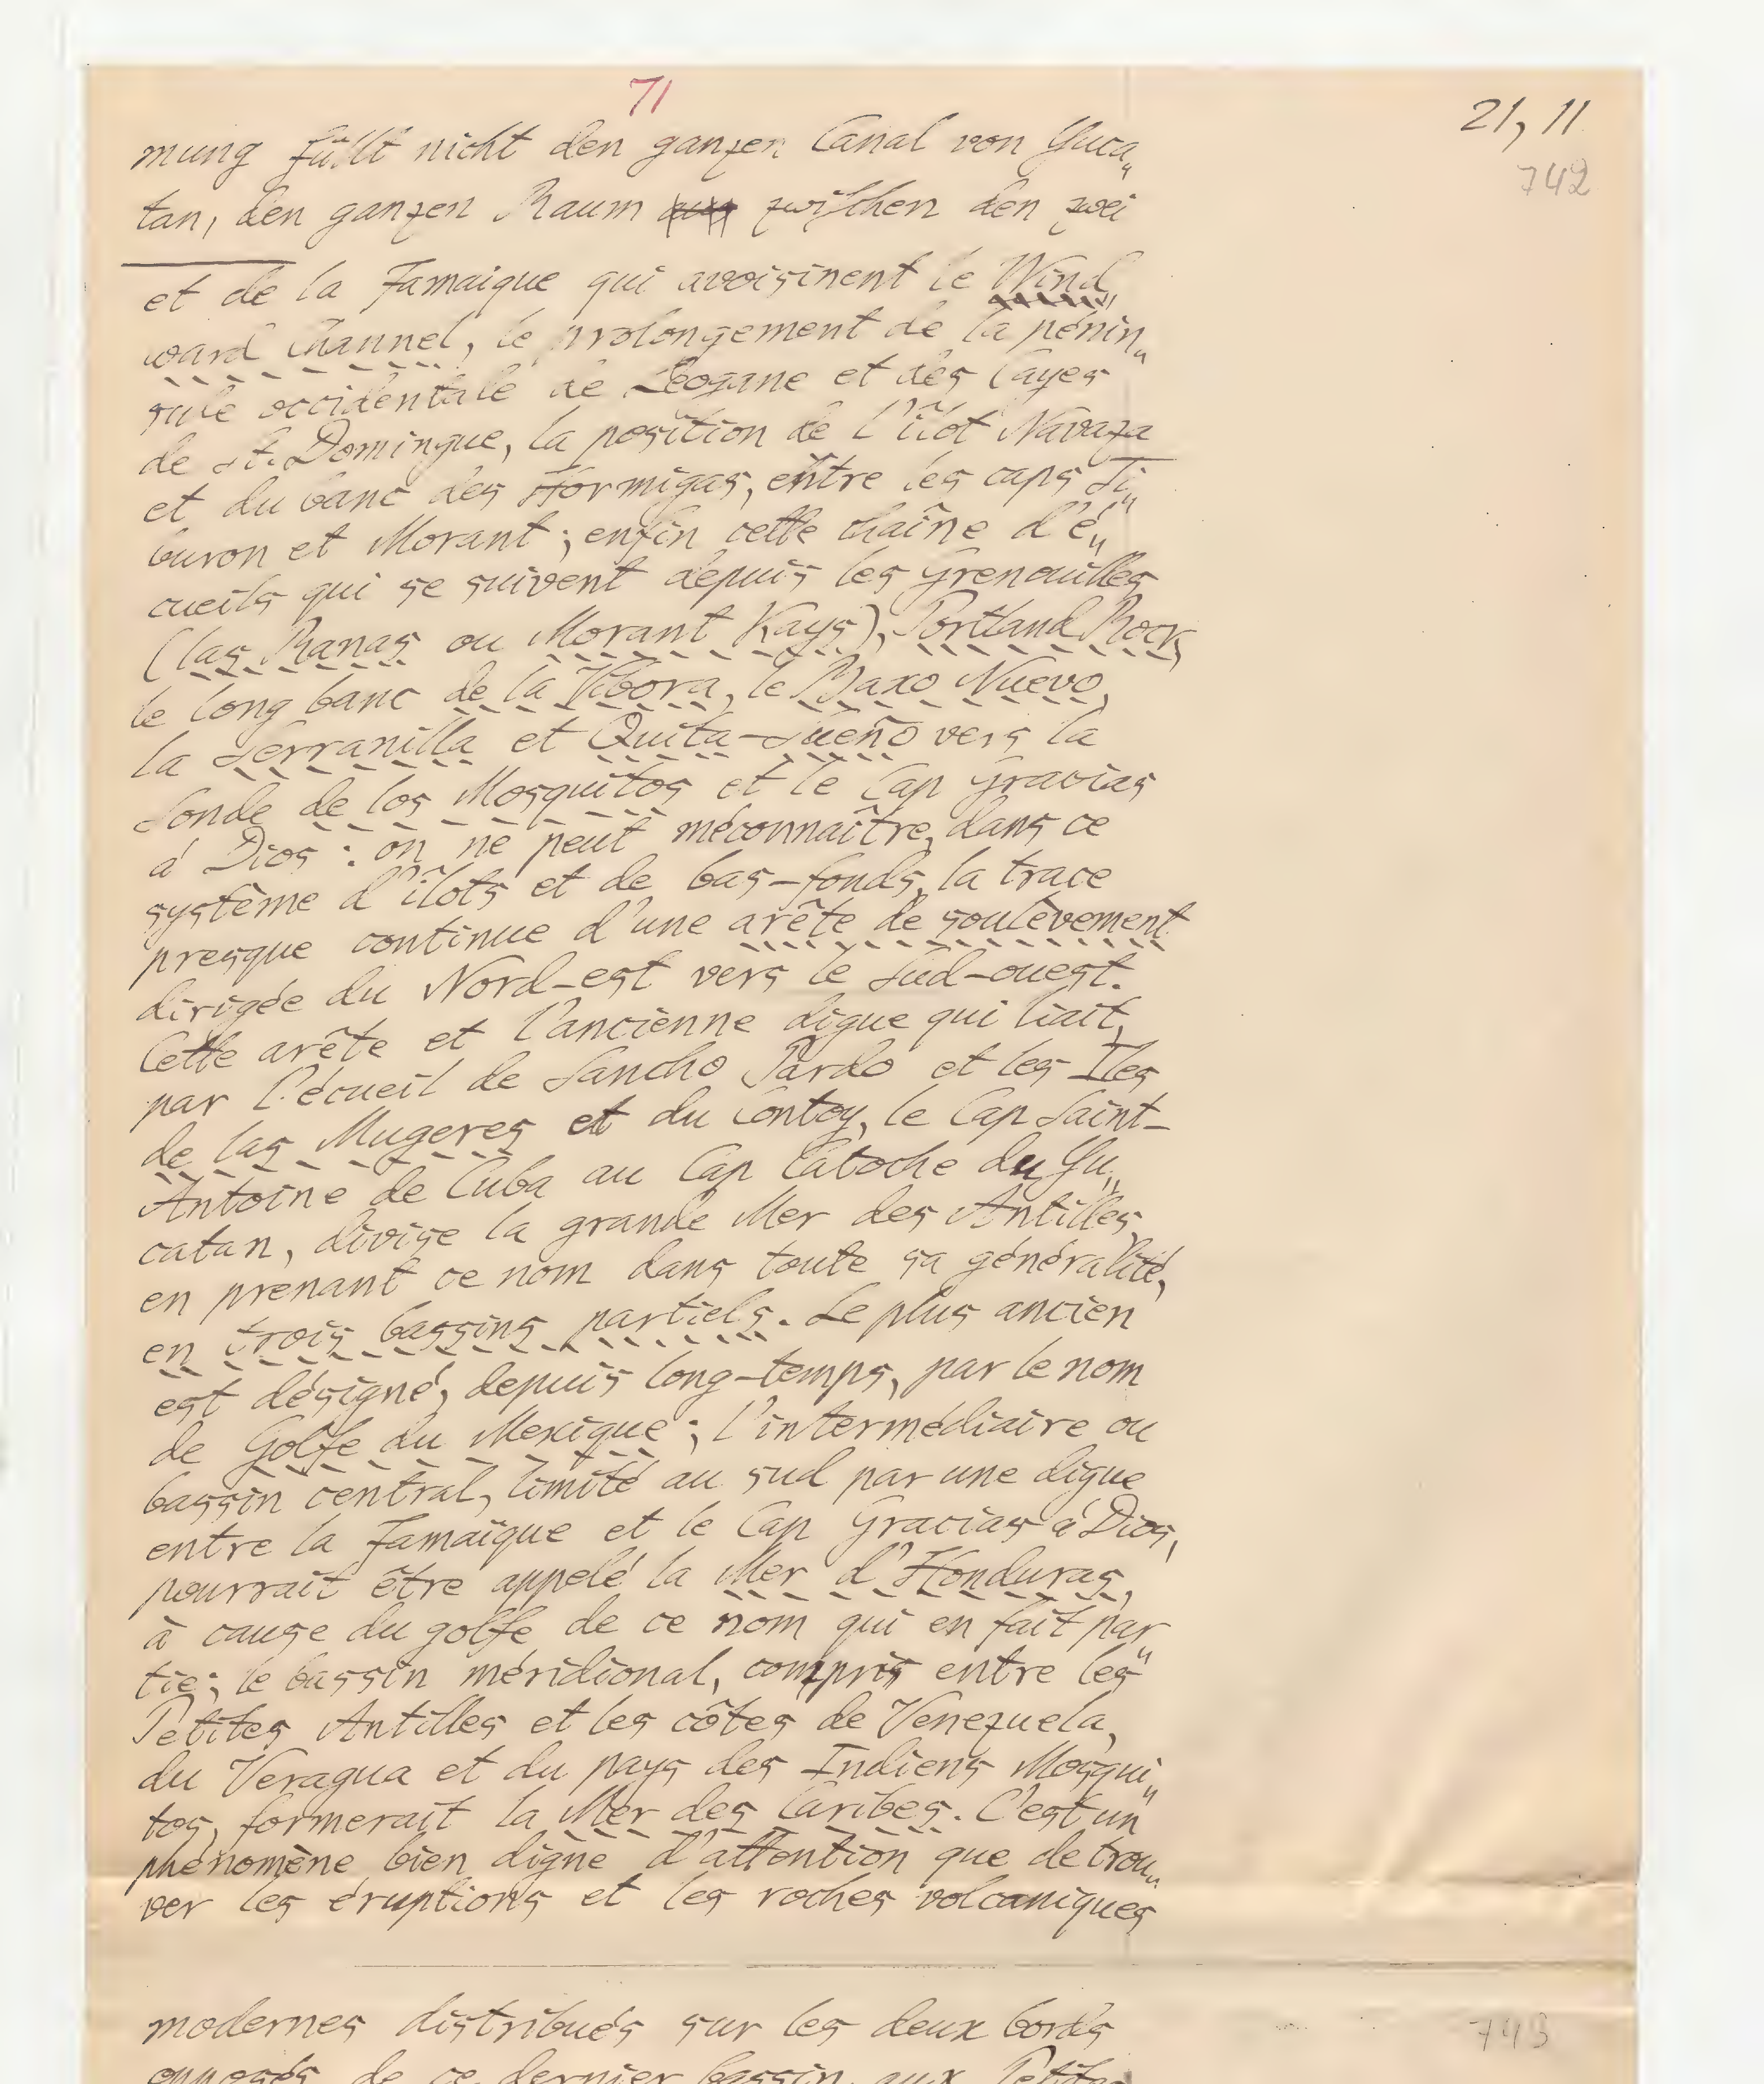 71
21, 11
742
mung füllt nicht den ganzen Canal von Yuca„
tan, den ganzen Raum zwischen den zwei
et de la Jamaique qui avoisinent le Wind„
ward Channel, le prolongement de la pénin„
sule occidentale de Leogane et des Cayes
de St. Domingue, la position de l'îlot Navaza
et du banc des Hormigas, entre les caps Ti„
buron et Morant; enfin cette chaîne d'é„
cueils qui se suivent depuis les Grenouilles
(las Ranas ou Morant Kays), Portland Rock,
le long banc de la Vibora, le Baxo Nuevo,
la Serranilla et Quita-Sueño vers la
Sonde de los Mosquitos et le Cap Gracias
á Dios: on ne peut méconnaître, dans ce
système d'îlots et de bas-fonds, la trace
presque continue d'une arête de soulèvement
dirigée du Nord-est vers le Sud-ouest.
Cette arête et l'ancienne digue qui liait,
par l'écueil de Sancho Pardo et les Iles
de las Mugeres et du Contoy, le Cap Saint-
Antoine de Cuba au Cap Catoche du Yu„
catan, divise la grande Mer des Antilles,
en prenant ce nom dans toute sa généralité,
en trois bassins partiels. Le plus ancien
est désigné, depuis long-temps, par le nom
de Golfe du Mexique; l'intermédiaire ou
bassin central, limité au sud par une digue
entre la Jamaïque et le Cap Gracias á Dios,
pourrait être appelé la Mer d'Honduras,
à cause du golfe de ce nom qui en fait par„
tie; le bassin méridional, compris entre les
Petites Antilles et les côtes de Venezuela,
du Veragua et du pays des Indiens Mosqui„
tos, formerait la Mer des Caribes. C'est un
phénomène bien digne d'attention que de trou„
ver les éruptions et les roches volcaniques
modernes distribués sur les deux bords
743
opposés de ce dernier bassin, aux Petites